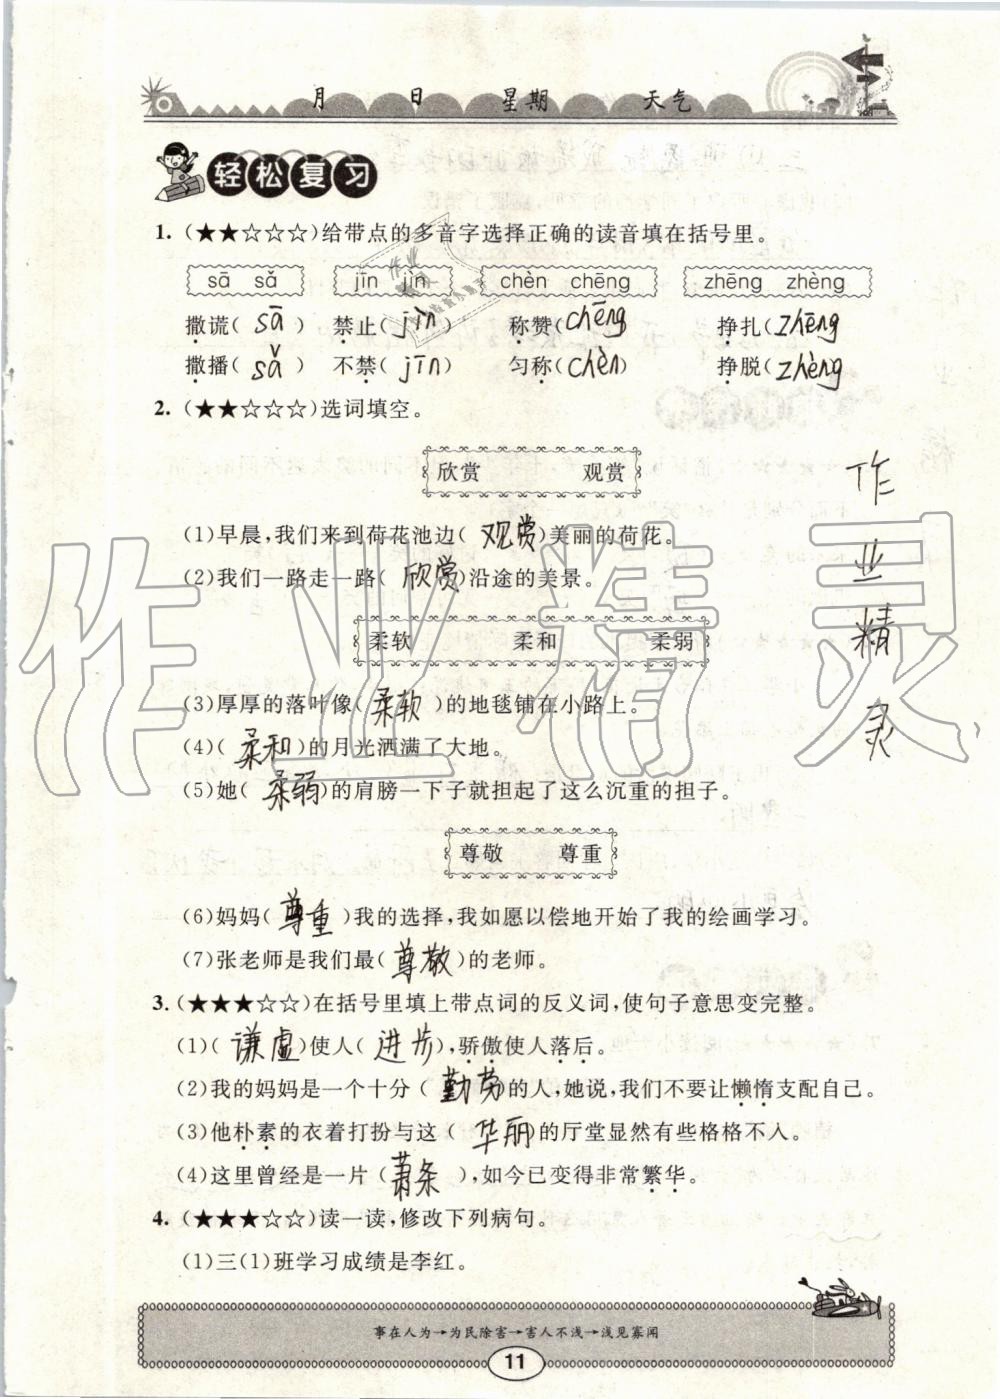 月 日 星期 天气
轻松复习
1.(★★☆☆☆)给带点的多音字选择正确的读音填在括号里。
sā sǎ jīn jìn chèn chēng zhēng zhèng
撒谎( sā ) 禁止( jìn ) 称赞( chēng ) 挣扎( zhēng )
撒播( sǎ ) 不禁( jīn ) 匀称( chèn ) 挣脱( zhèng )
2.(★★☆☆☆)选词填空。
欣赏 观赏
(1)早晨,我们来到荷花池边( 观赏 )美丽的荷花。
(2)我们一路走一路( 欣赏 )沿途的美景。
柔软 柔和 柔弱
(3)厚厚的落叶像( 柔软 )的地毯铺在小路上。
(4)( 柔和 )的月光洒满了大地。
(5)她( 柔弱 )的肩膀一下子就担起了这么沉重的担子。
尊敬 尊重
(6)妈妈( 尊重 )我的选择,我如愿以偿地开始了我的绘画学习。
(7)张老师是我们最( 尊敬 )的老师。
3.(★★★☆☆)在括号里填上带点词的反义词,使句子意思变完整。
(1)( 谦虚 )使人( 进步 ),骄傲使人落后。
(2)我的妈妈是一个十分( 勤劳 )的人,她说,我们不要让懒惰支配自己。
(3)他朴素的衣着打扮与这( 华丽 )的厅堂显然有些格格不入。
(4)这里曾经是一片( 萧条 ),如今已变得非常繁华。
4.(★★★☆☆)读一读,修改下列病句。
(1)三(1)班学习成绩是李红。
事在人为→为民除害→害人不浅→浅见寡闻
11
作业精灵
作业精灵